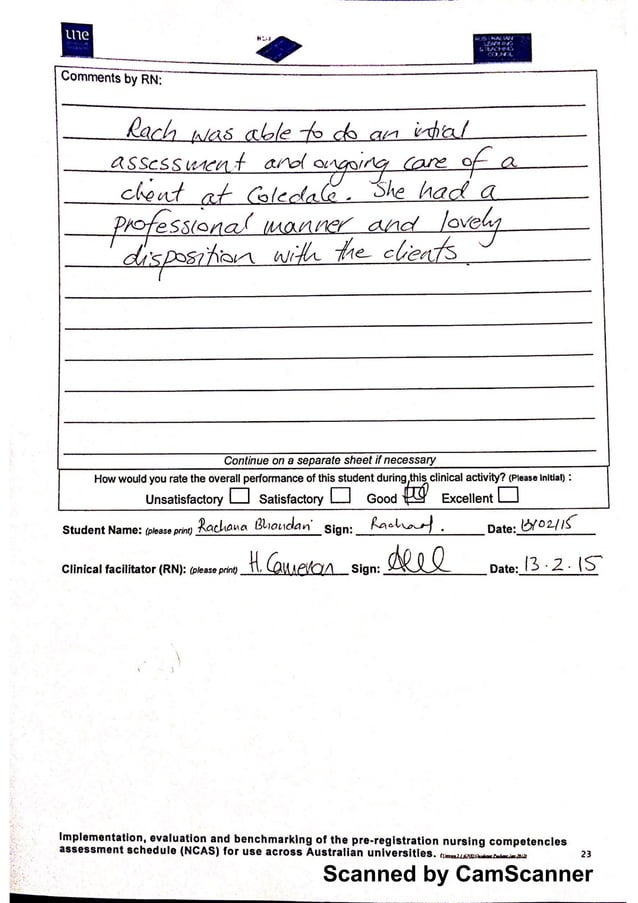 une
AUSTRALIAN
LEARNING
& TEACHING
COUNCIL
Comments by RN:
Rach was able to do an intial
assessment and ongoing care of a
client at Coledale. She had a
professional manner and lovely
disposition with the clients.
Continue on a separate sheet if necessary
How would you rate the overall performance of this student during this clinical activity? (Please initial) :
Unsatisfactory Satisfactory Good Excellent
Student Name: (please print) Rachana Bhandari Sign: Rachana. Date: 13/02/15
Clinical facilitator (RN): (please print) H. Cameron Sign: Date: 13.2.15
Implementation, evaluation and benchmarking of the pre-registration nursing competencies
assessment schedule (NCAS) for use across Australian universities.
23
Scanned by CamScanner